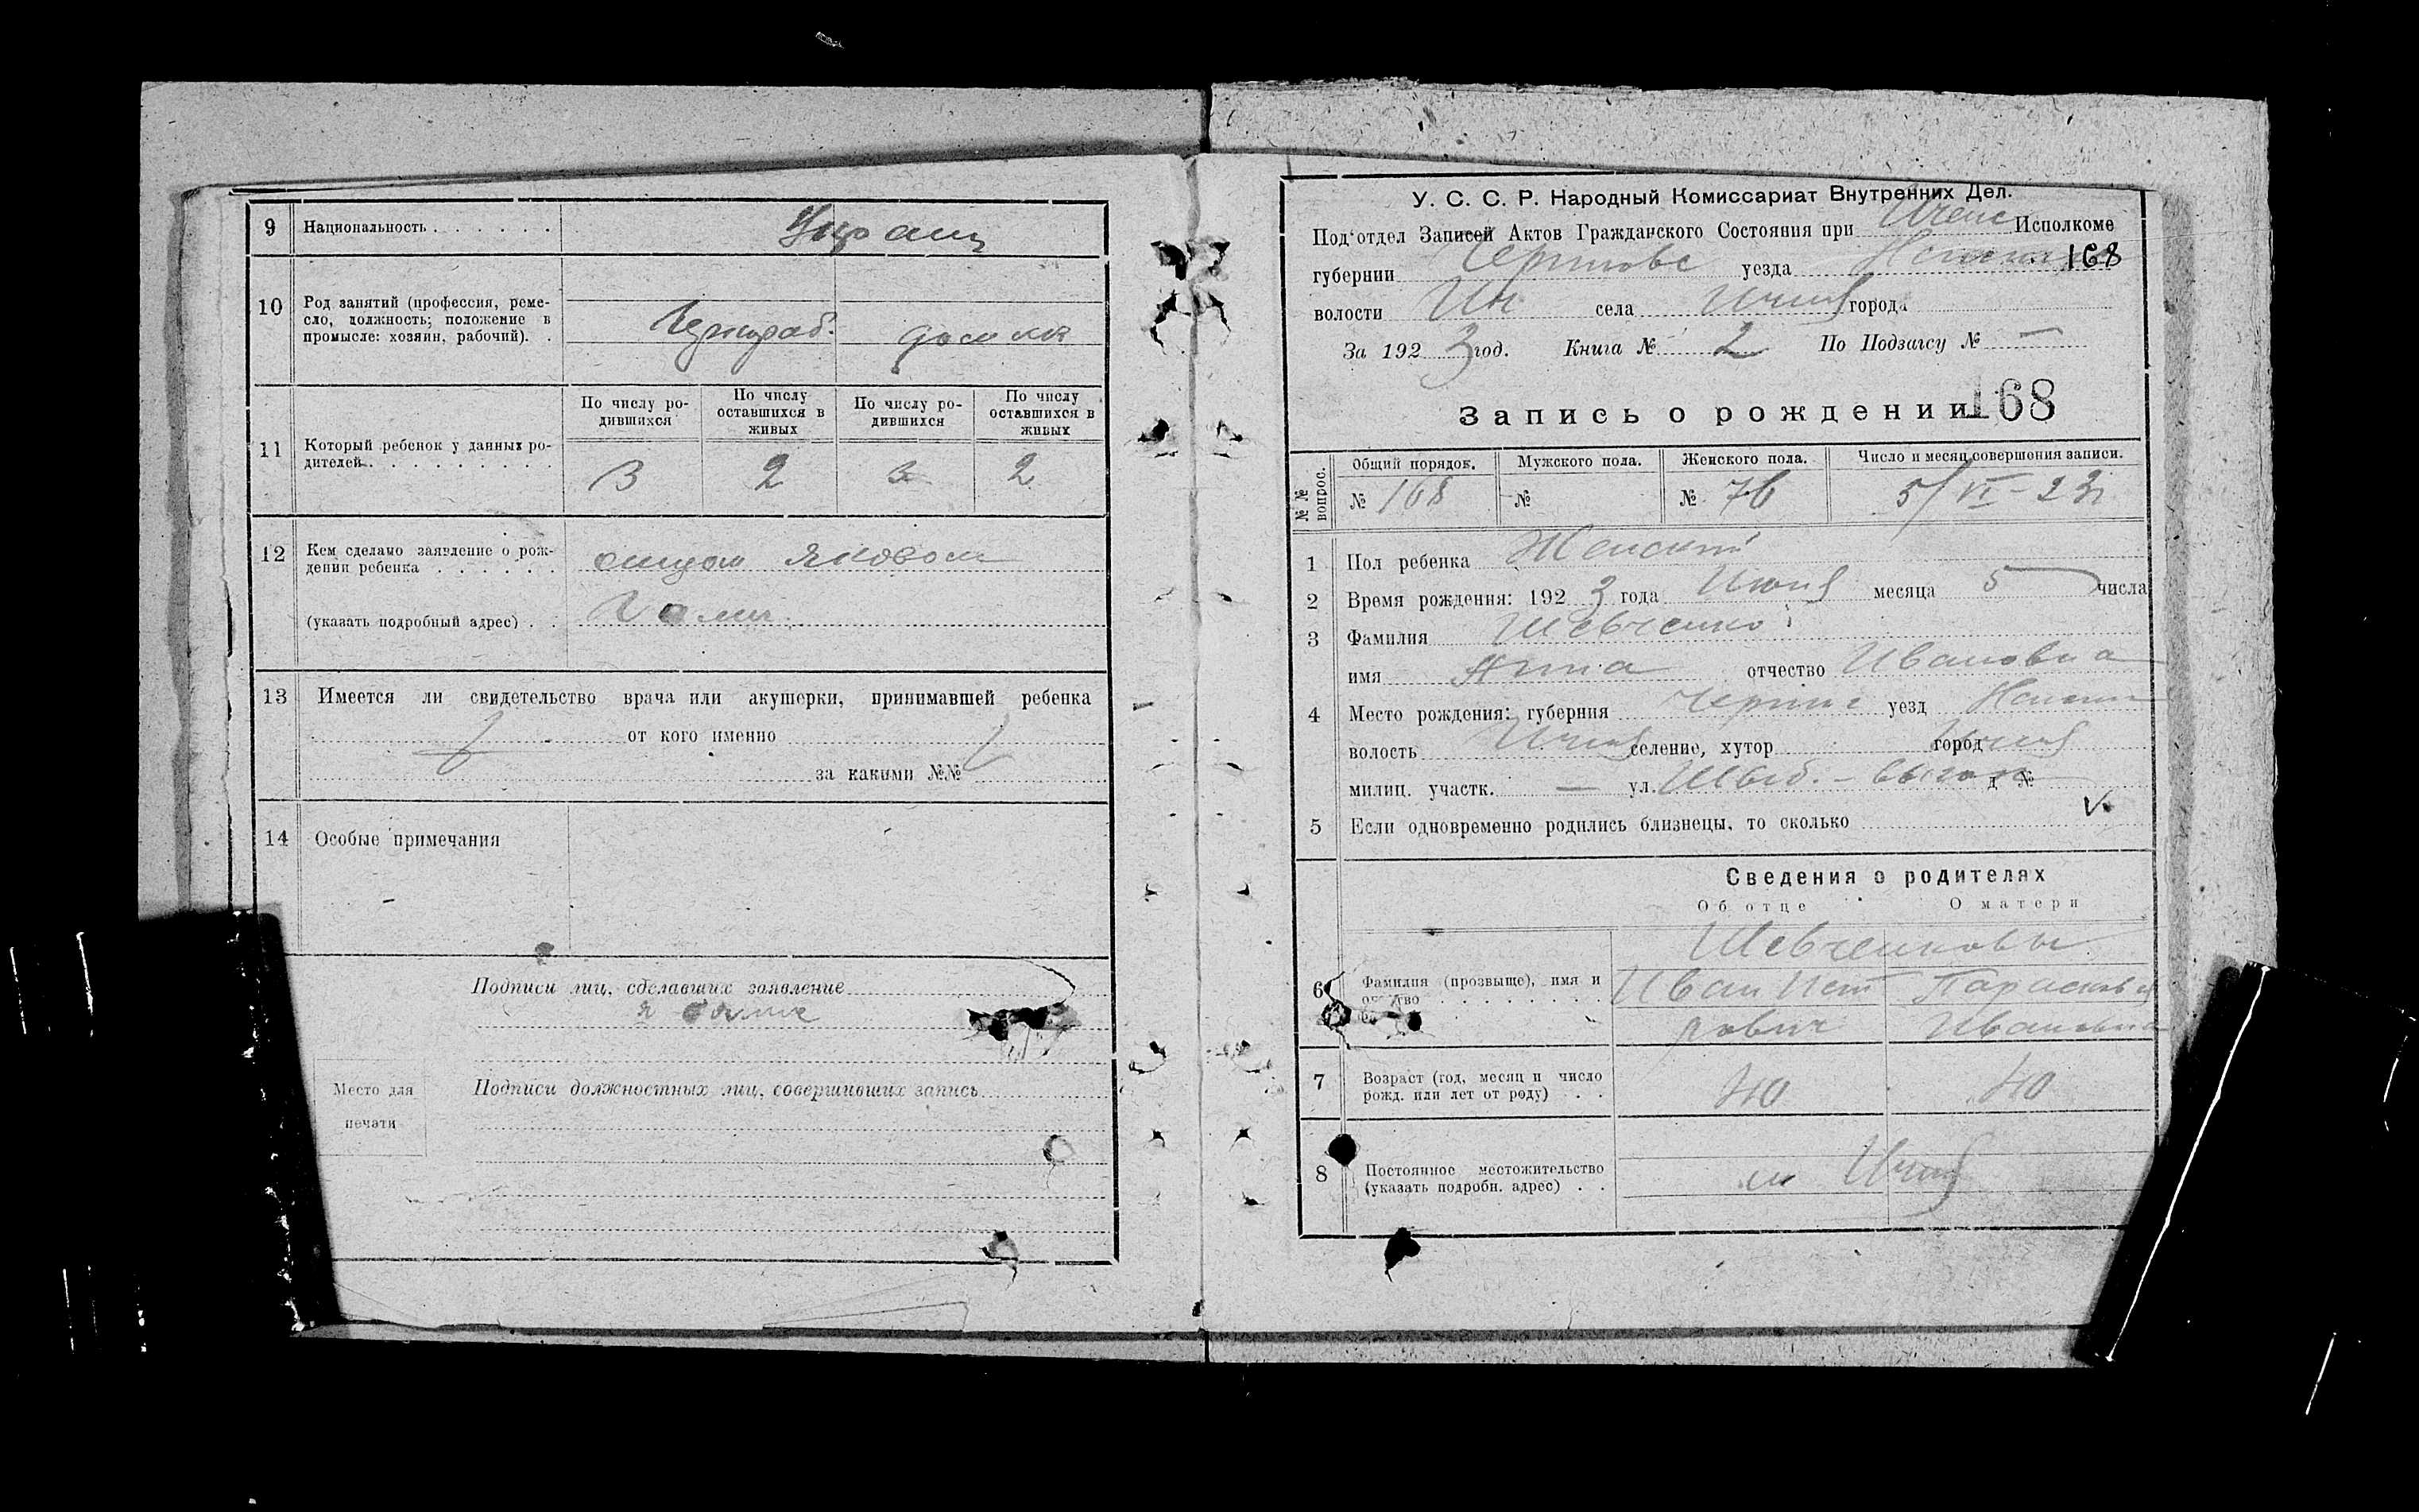 9 Национальность . . . . . . Украин
10 Род занятий (профессия, реме-
сло, должность; положение в
промысле: хозяин, рабочий). .
Чернораб. домашн
11 Который ребенок у данных ро-
дителей . . . . . . . . . .
По числу ро-
дившихся
По числу
оставшихся в
живых
По числу ро-
дившихся
По числу
оставшихся в
живых
3 2 3 2
12 Кем сделано заявление о рож-
дении ребенка . . . . . . отцом
(указать подробный адрес) . .
13 Имеется ли свидетельство врача или акушерки, принимавшей ребенка
от кого именно
за какими №№
14 Особые примечания
Подписи лиц, сделавших заявление
Место для
печати
Подписи должностных лиц, совершивших запись
У. С. С. Р. Народный Комиссариат Внутренних Дел.
Под'отдел Записей Актов Гражданского Состояния при Иченс Исполкоме
губернии Черниговс уезда 168
волости Ич села Ичня города
За 192 3 год. Книга № 2 По Подзагсу № —
Запись о рождении 168
№№ вопрос.
Общий порядок. Мужского пола. Женского пола. Число и месяц совершения записи.
№ 168 № № 76 5/VI-23
1 Пол ребенка Женский
2 Время рождения: 192 3 года Июня месяца 5 числа
3 Фамилия Шевченко
имя Анна отчество Ивановна
4 Место рождения: губерния Черниг уезд Нежин
волость Ичня селение, хутор город Ичня
милиц. участк. — ул. д №
5 Если одновременно родились близнецы, то сколько
Сведения о родителях
Об отце О матери
Шевченковы
6 Фамилия (прозвыще), имя и
Иван Пет Параскева
рович Ивановна
7 Возраст (год, месяц и число
рожд. или лет от роду) . . 40 40
8 Постоянное местожительство
(указать подробн. адрес) . . м Ичня